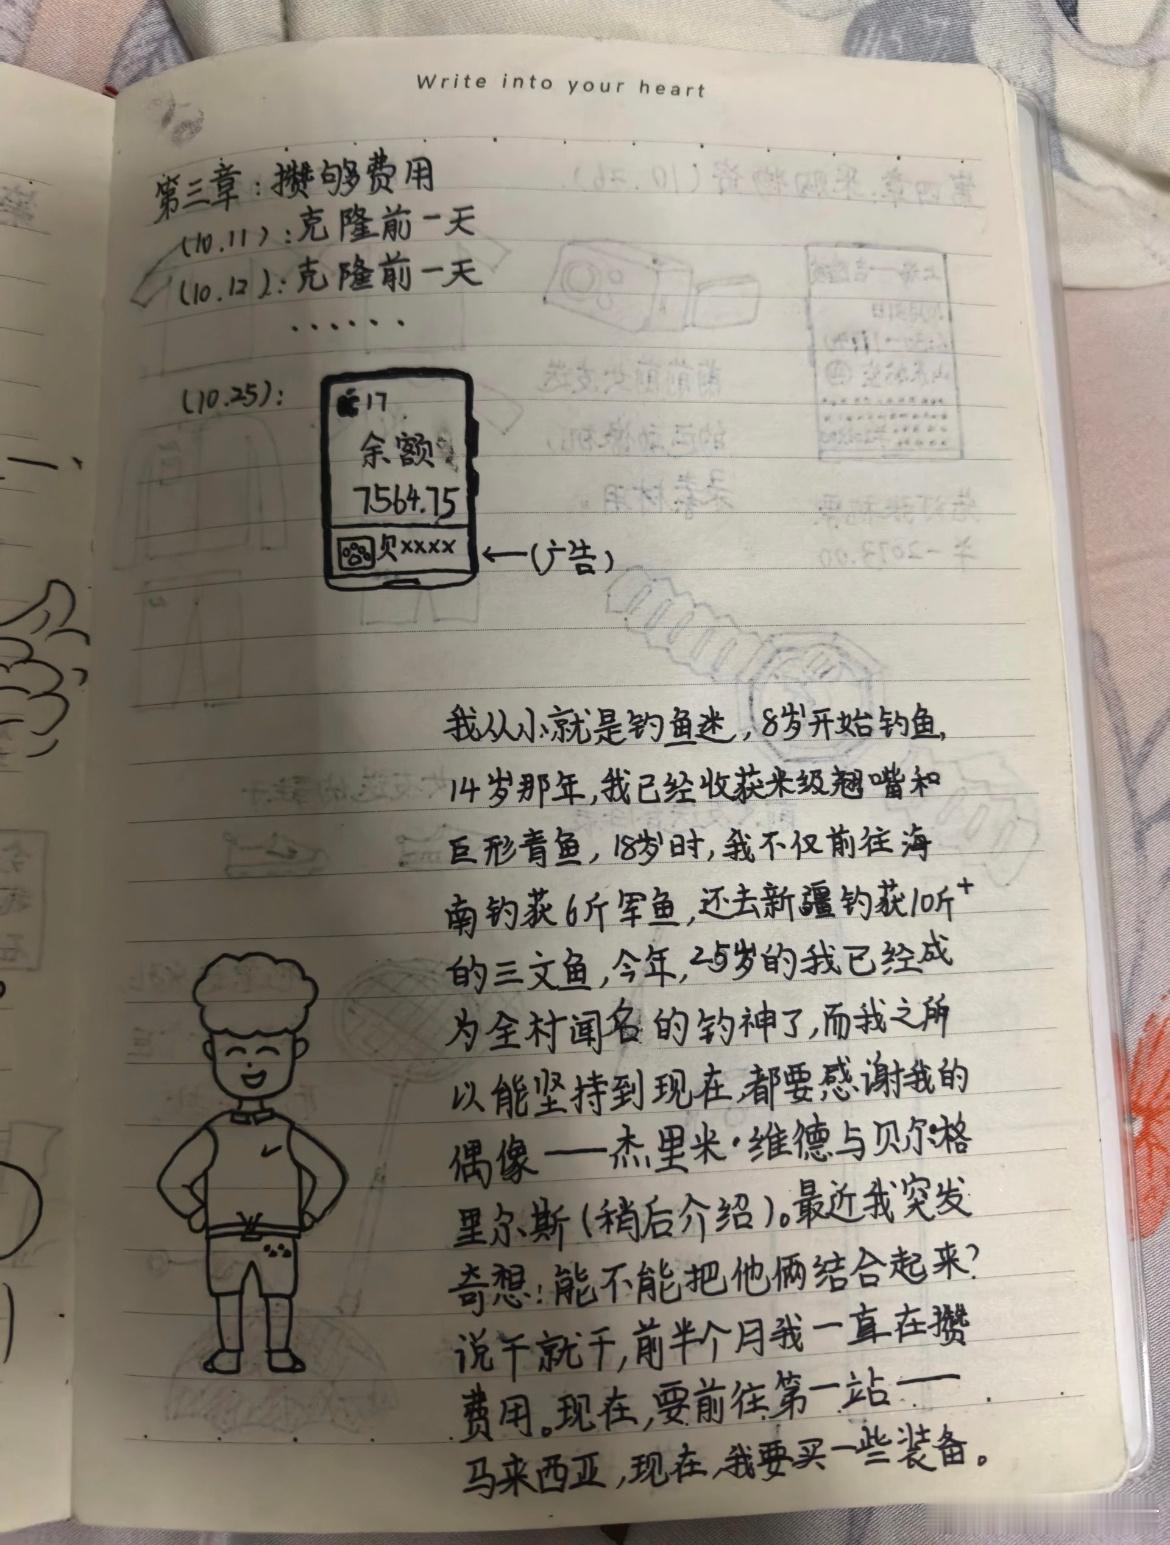 Write into your heart
第三章：攒够费用
(10.11)：克隆前一天
(10.12)：克隆前一天
······
(10.25)：
17
余额
7564.75
贝xxxx
←(广告)
我从小就是钓鱼迷，8岁开始钓鱼，
14岁那年，我已经收获米级翘嘴和
巨形青鱼，18岁时，我不仅前往海
南钓获6斤军鱼，还去新疆钓获10斤+
的三文鱼，今年，25岁的我已经成
为全村闻名的钓神了，而我之所
以能坚持到现在，都要感谢我的
偶像——杰里米·维德与贝尔·格
里尔斯（稍后介绍）。最近我突发
奇想：能不能把他俩结合起来？
说干就干，前半个月我一直在攒
费用。现在，要前往第一站——
马来西亚，现在，我要买一些装备。